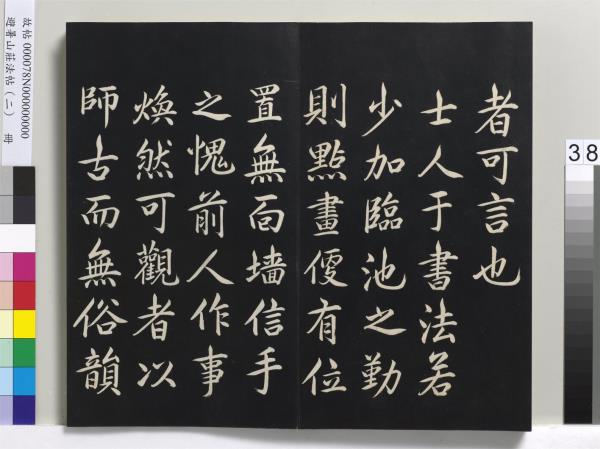 者可言也
士人于書法若
少加臨池之勤
則點畫便有位
置無靣墻信手
之愧前人作事
煥然可觀者以
師古而無俗韻
故帖 000078N000000000
避暑山莊法帖(二) 冊
38